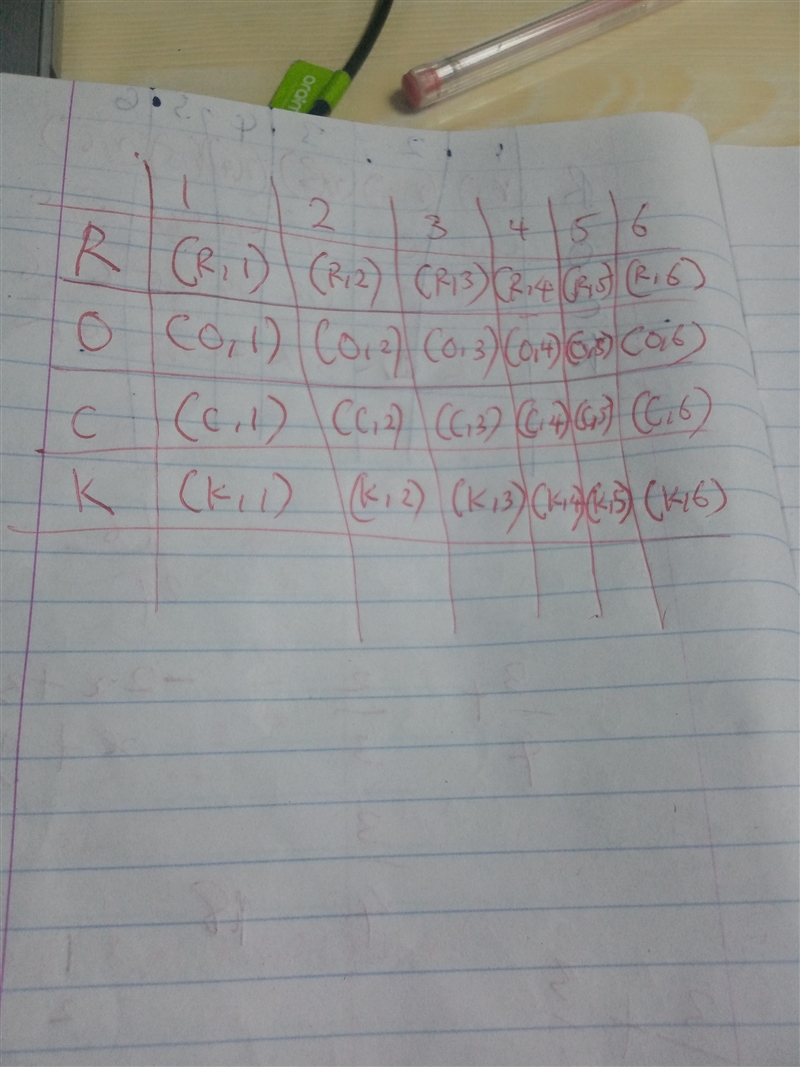 oraim
1 2 3 4 5 6
R (R,1) (R,2) (R,3) (R,4 (R,5) (R,6)
O (O,1) (O,2) (O,3) (O,4) (O,5) (O,6)
C (C,1) (C,2) (C,3) (C,4) (C,5) (C,6)
K (K,1) (K,2) (K,3) (K,4) (K,5) (K,6)